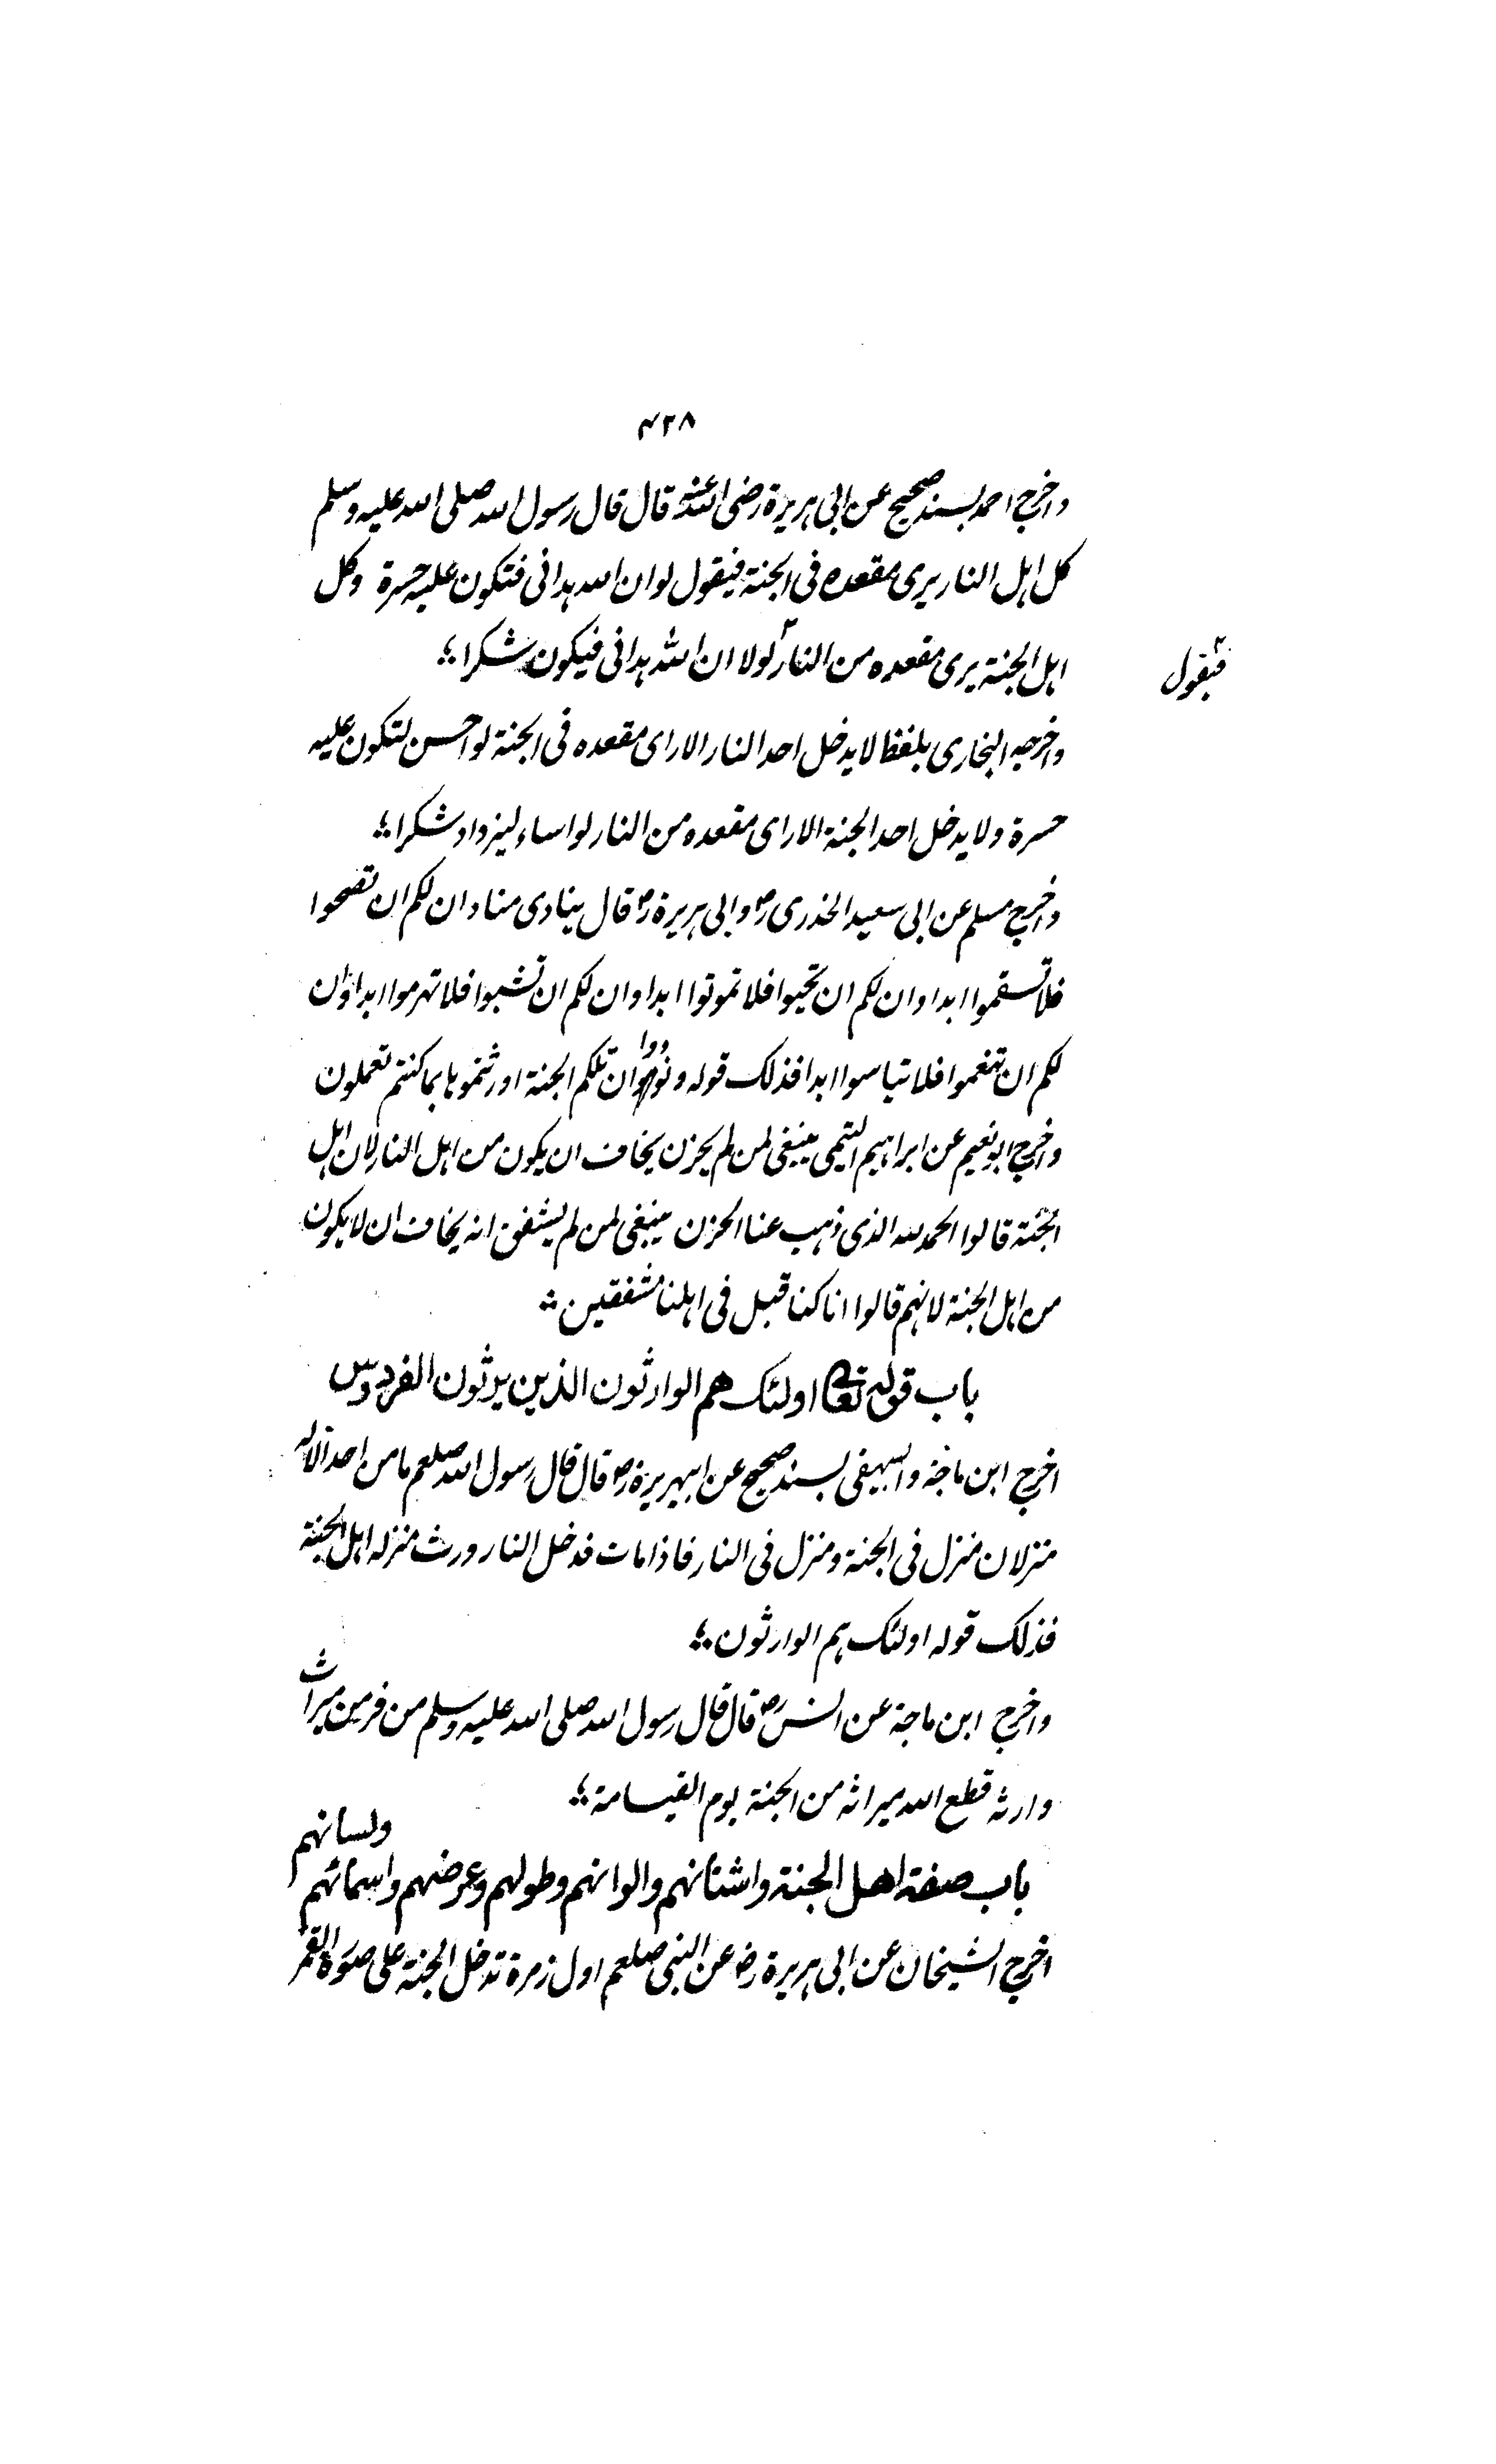 ۴۲۸
واخرج احمد بسند صحيح عن ابى هريرة رضى الله عنه قال قال رسول الله صلى الله عليه وسلم
كل اهل النار يرى مقعده فى الجنة فيقول لو ان الله هدانى فتكون عليه حسرة وكل
اهل الجنة يرى مقعده من النار لولا ان الله هدانى فيكون شكرا
فيقول
واخرجه البخارى بلفظ لا يدخل احد النار الا راى مقعده فى الجنة لو احسن لتكون عليه
حسرة ولا يدخل احد الجنة الا راى مقعده من النار لو اساء ليزداد شكرا
واخرج مسلم عن ابى سعيد الخدرى رض وابى هريرة رض قال ينادى مناد ان لكم ان تصحوا
فلا تسقموا ابدا وان لكم ان تحيوا فلا تموتوا ابدا وان لكم ان تشبوا فلا تهرموا ابدا وان
لكم ان تنعموا فلا تباسوا ابدا فذلك قوله ونودوا ان تلكم الجنة اورثتموها بما كنتم تعملون
واخرج ابو نعيم عن ابراهيم التيمى ينبغى لمن لم يحزن يخاف ان يكون من اهل النار لان اهل
الجنة قالوا الحمد لله الذى ذهب عنا الحزن ينبغى لمن لم يشفق انه يخاف ان لا يكون
من اهل الجنة لانهم قالوا انا كنا قبل فى اهلنا مشفقين
باب قوله تعا اولئك هم الوارثون الذين يرثون الفردوس
اخرج ابن ماجة والبيهقى بسند صحيح عن ابيهريرة رض قال قال رسول الله صلعم ما من احد الا له
منزلان منزل فى الجنة ومنزل فى النار فاذا مات فدخل النار ورث منزله اهل الجنة
فذلك قوله اولئك هم الوارثون
واخرج ابن ماجة عن انس رض قال قال رسول الله صلى الله عليه وسلم من فر من ميراث
وارثه قطع الله ميراثه من الجنة يوم القيامة
باب صفة اهل الجنة واسنانهم والوانهم وطولهم وعرضهم واسمائهم ولسانهم
اخرج الشيخان عن ابى هريرة رض عن النبى صلعم اول زمرة تدخل الجنة على صورة القمر